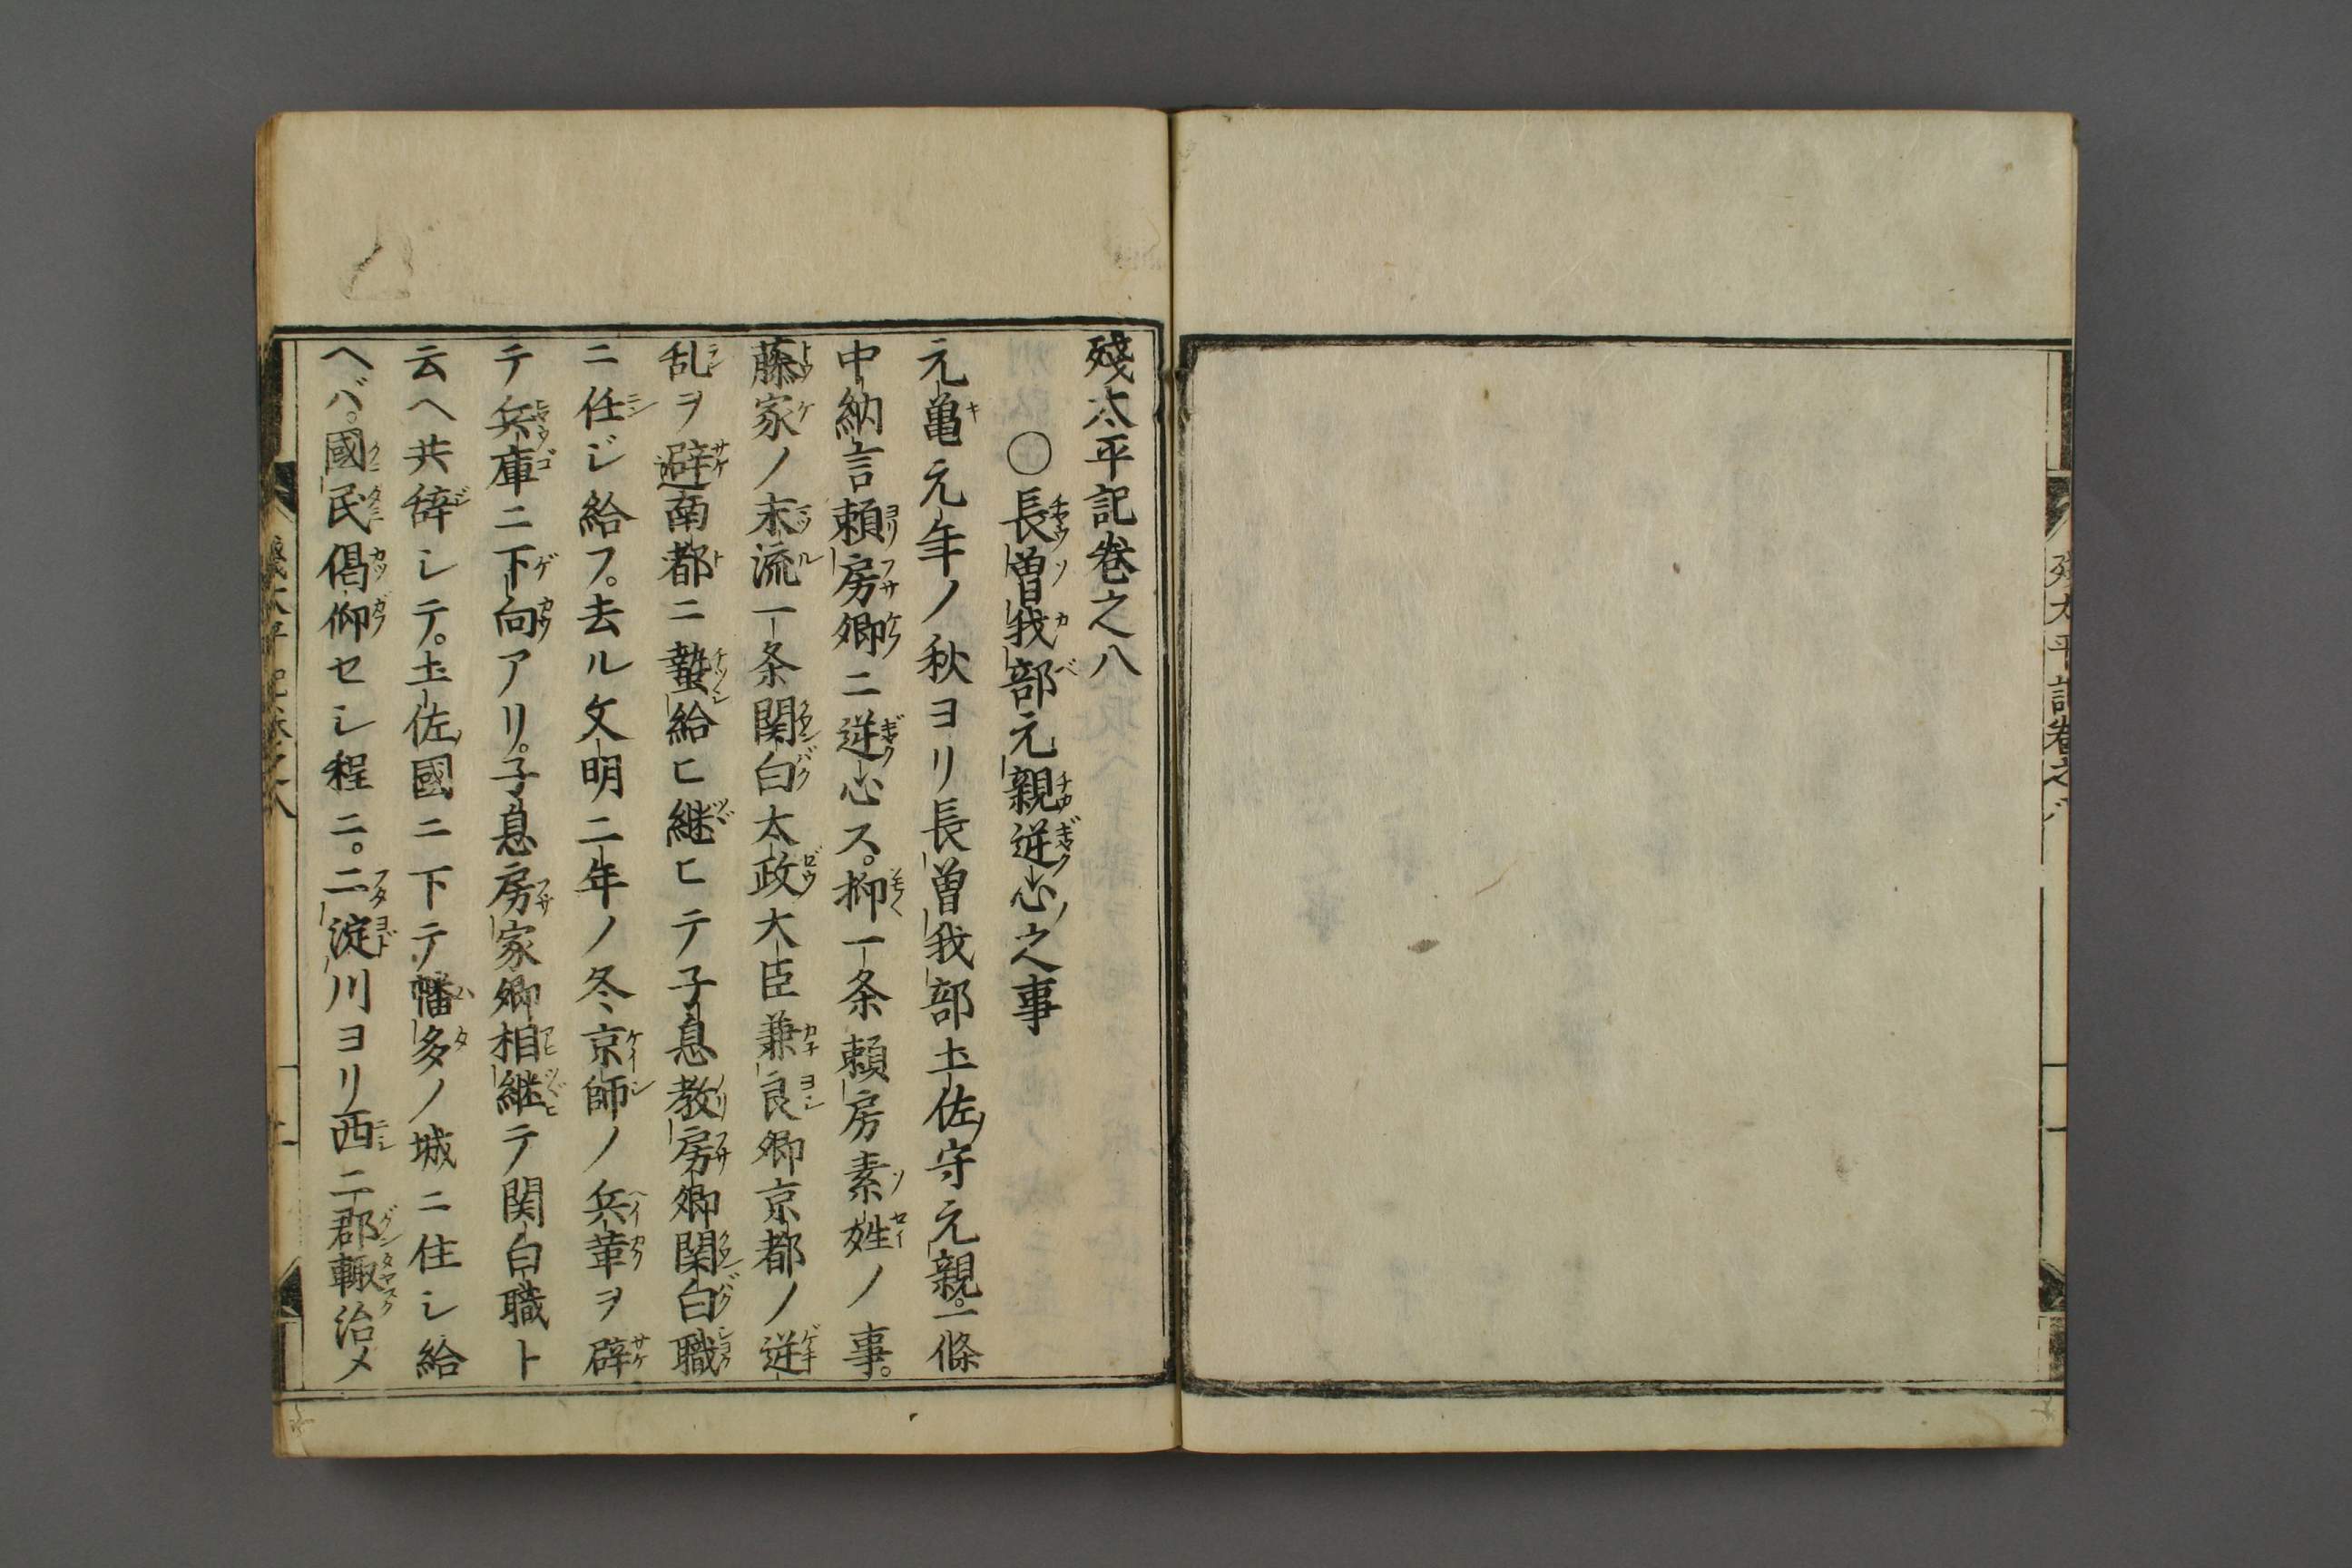 残太平記巻之八
殘太平記卷之八
○長曽我部元親逆心之事
元亀元年ノ秋ヨリ長曽我部土佐守元親。一條
中納言頼房卿ニ逆心ス。抑一条頼房素姓ノ事。
藤家ノ末流一条関白太政大臣兼良卿京都ノ逆
乱ヲ避南都ニ蟄給ヒ継ヒテ子息教房卿関白職
ニ任ジ給フ。去ル文明二年ノ冬京師ノ兵革ヲ辟
テ兵庫ニ下向アリ。子息房家卿相継テ関白職ト
云ヘ共辞シテ。土佐國ニ下テ幡多ノ城ニ住シ給
ヘバ。國民偈仰セシ程ニ。二淀川ヨリ西二郡輙治メ
残太平記巻之八